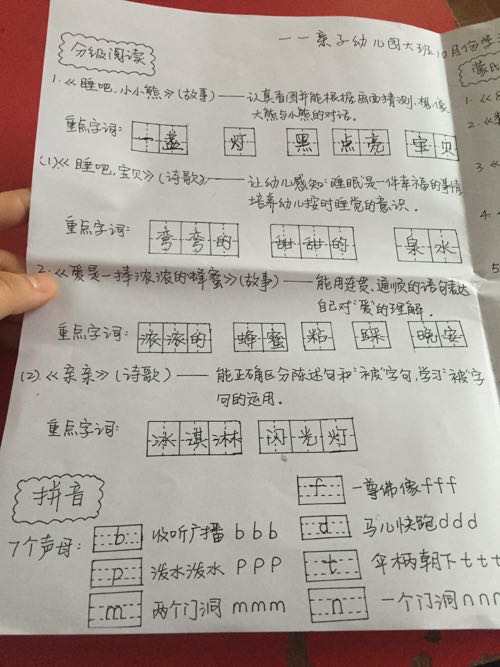 ——亲子幼儿园大班10月份学
分级阅读
1.《睡吧,小小熊》(故事)——认真看图并能根据画面猜测、想、读
大熊与小熊的对话。
重点字词: 一盏 灯 黑 点亮 宝贝
(1)《睡吧,宝贝》(诗歌)——让幼儿感知"睡眠"是一件幸福的事情
培养幼儿按时睡觉的意识。
重点字词: 弯弯的 甜甜的 泉水
2.《爱是一捧浓浓的蜂蜜》(故事)——能用连贯、通顺的语句表达
自己对"爱"的理解.
重点字词: 浓浓的 蜂蜜 粘 踩 晚安
(2).《亲亲》(诗歌)——能正确区分陈述句和"被"字句,学习"被"字
句的运用。
重点字词: 冰淇淋 闪光灯
拼音
f 一尊佛像fff
7个声母: b 收听广播bbb d 马儿快跑ddd
p 泼水泼水PPP t 伞柄朝下ttt
m 两个门洞mmm n 一个门洞nnn
蒙氏
1.
2.
3.
4.
5